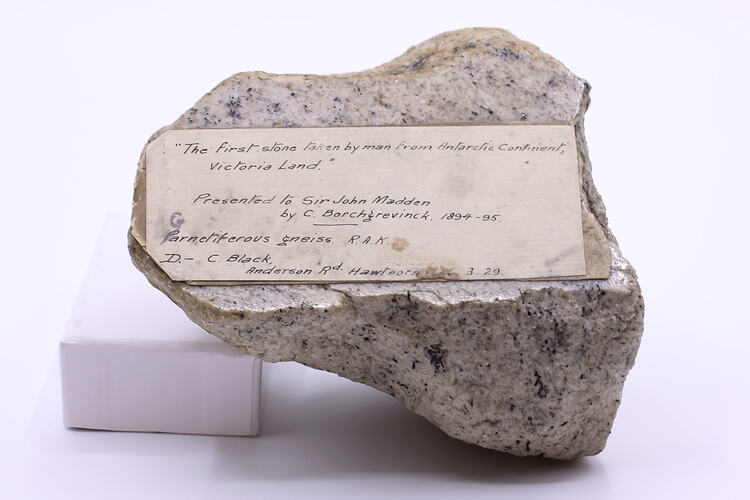 "The first stone taken by man from Antarctic Continent,
Victoria Land."
Presented to Sir John Madden
by C. Borchgrevinck. 1894-95.
G
Parnetiferous gneiss. R.A.K.
D.- C. Black,
Anderson Rd. Hawthorn 3.29.